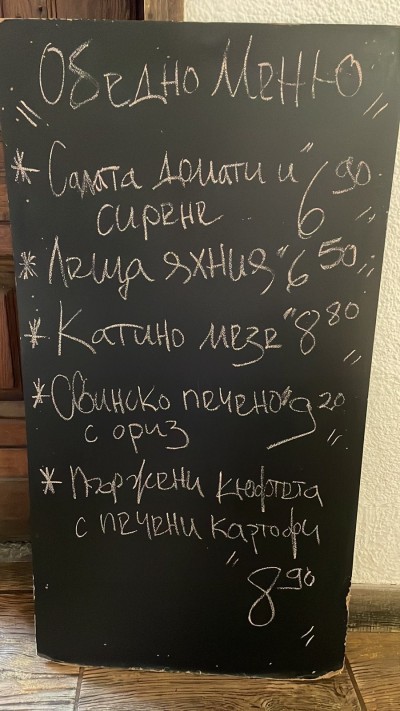 Обедно Меню
* Салата домати и
сирене 6 90
* Леща яхния 6 50
* Катино мезе 8 80
* Свинско печено 9 20
с ориз
* Пържени кюфтета
с печени картофи
8 90